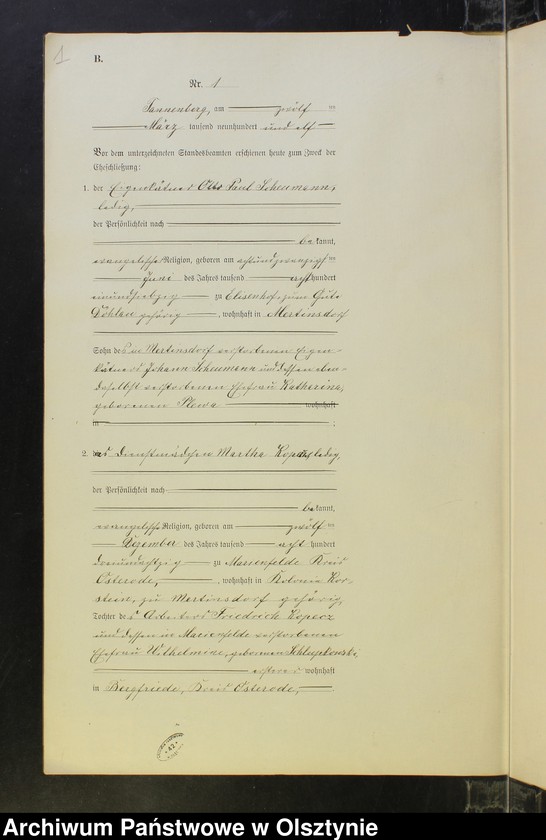 1
B.
Nr. 1
Tannenberg, am zwölf ten
März tausend neunhundert und elf
Vor dem unterzeichneten Standesbeamten erschienen heute zum Zweck der
Eheschließung:
1. der Eigenkätner Otto Paul Scheumann,
ledig,
der Persönlichkeit nach
be kannt,
evangelischer Religion, geboren am achtundzwanzigs ten
Juni des Jahres tausend acht hundert
einundsiebzig zu Elisenhof zum Gute
Döhlau gehörig, wohnhaft in Mertinsdorf
Sohn des in Mertinsdorf verstorbenen Eigen-
kätners Johann Scheumann und dessen eben-
daselbst verstorbenen Ehefrau Katharina,
geborenen Plewa wohnhaft
in
2. das Dienstmädchen Martha Kopecz ledig,
der Persönlichkeit nach
be kannt,
evangelischer Religion, geboren am zwölf ten
Dezember des Jahres tausend acht hundert
dreiundachtzig zu Marienfelde Kreis
Osterode, wohnhaft in Kolonie
zu Mertinsdorf gehörig,
Tochter des Arbeiters Friedrich Kopecz
und dessen in Marienfelde verstorbenen
Ehefrau Wilhelmine, geborenen
ersterer wohnhaft
in Bergfriede, Kreis Osterode,
42
Archiwum Państwowe w Olsztynie